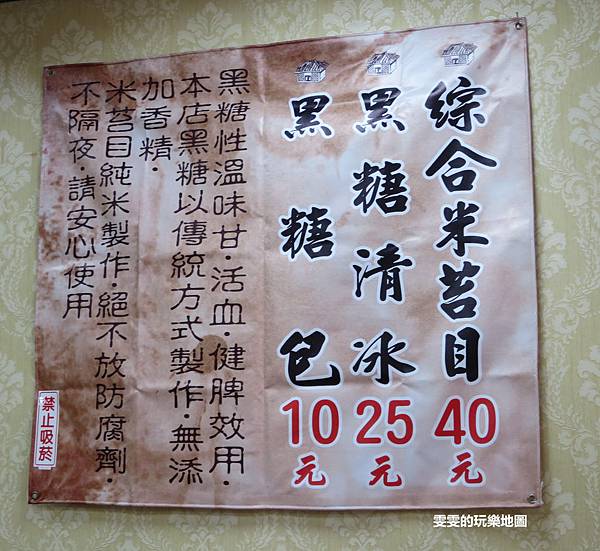 綜合米苔目40元
黑糖清冰25元
黑糖包10元
黑糖性溫味甘·活血·健脾效用·
本店黑糖以傳統方式製作·無添
加香精·
米苔目純米製作·絕不放防腐劑·
不隔夜·請安心使用
禁止吸菸
雯雯的玩樂地圖